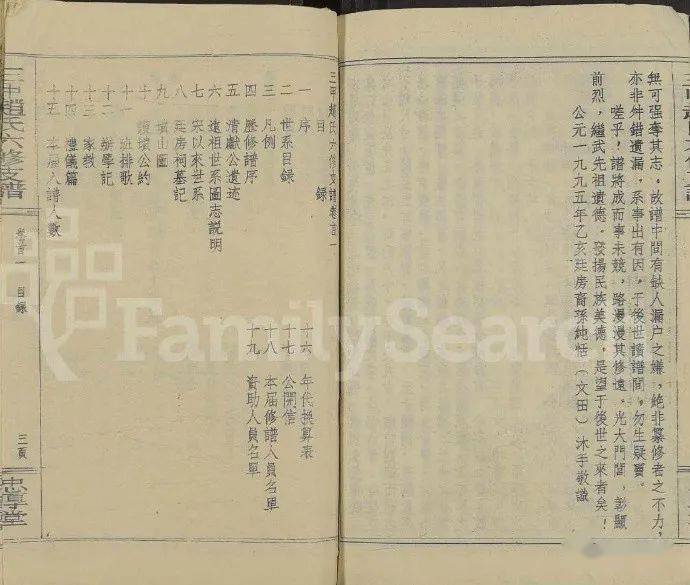 無可强奪其志，故譜中間有缺人漏户之嫌，絶非纂修者之不力，
亦非舛錯遺漏，系事出有因，于後世讀譜間，勿生疑竇。
嗟乎！譜將成而事未競，路漫漫其修遠，光大門閭，彰顯
前烈，繼武先祖遺德，發揚民族美德，是望于後世之來者矣！
公元一九九五年乙亥廷房裔孫純恬（文田）沐手敬識
三甲趙氏六修支譜卷首一
目録
一 序
二 世系目録
三 凡例
四 歷修譜序
五 清獻公遺迹
六 遠祖世系圖志説明
七 宋以來世系
八 廷房祠墓記
九 墳山圖
十 護墳公約
十一 班排歌
十二 辦學記
十三 家教
十四 禮儀篇
十五 本届入譜人數
十六 年代换算表
十七 公開信
十八 本届修譜人員名單
十九 資助人員名單
三甲趙氏六修支譜
卷首一 目録
三頁
忠厚堂
FamilySearch